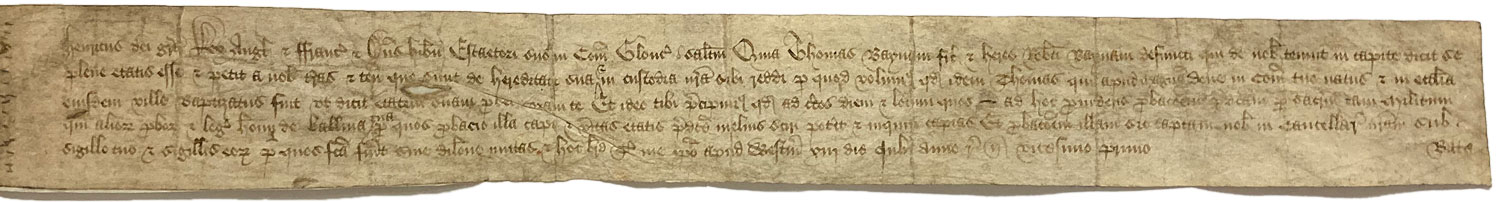 Henricus dei grã Rex Angł &amp; Ffranc̃ &amp; Dñs hibñ Escaetori suo in Com̃ Glouc̃ salt̃m Quia Thomas Baynam fił &amp; heres Rob̃ti Baynam defuncti qui de nob̃ tenuit in capite dicit se
plene etatis esse &amp; petit a nob̃ t̃ras &amp; teñ que sunt de hereditate sua &amp; in custodia nr̃a sibi reddi p̱ quod volum9 qd̃ idem Thomas qui apud Dene in Com̃ tuo natus &amp; in ecclia
eiusdem ville baptizatus fuit vt dicit etatem suam p̱ te Et ideo tibi p̃cipim9 qd̃ ad c̃tos diem &amp; locum quos ad hoc p̱uideris p̱bac̃oem p̱dcam p̱ sac̃m tam militum
q̃m alior̃ p̱bor̃ &amp; leg̃ hom̃ de balliua tua p̱ quos p̱bacio illa capi &amp; v̱itas etatis p̃dc̃e melius sciri poterit &amp; inquiri capias Et p̱bac̃oem illam sic captam nob̃ in Cancellar̃ nr̃am sub
sigillo tuo &amp; sigillis eor̃ p̱ quos fc̃a fũit sine dilõne mittas &amp; hoc br̃e T̃ me ip̃o apud Westm̃ viij die Julij anno r̃ ñ vicesimo primo Bate